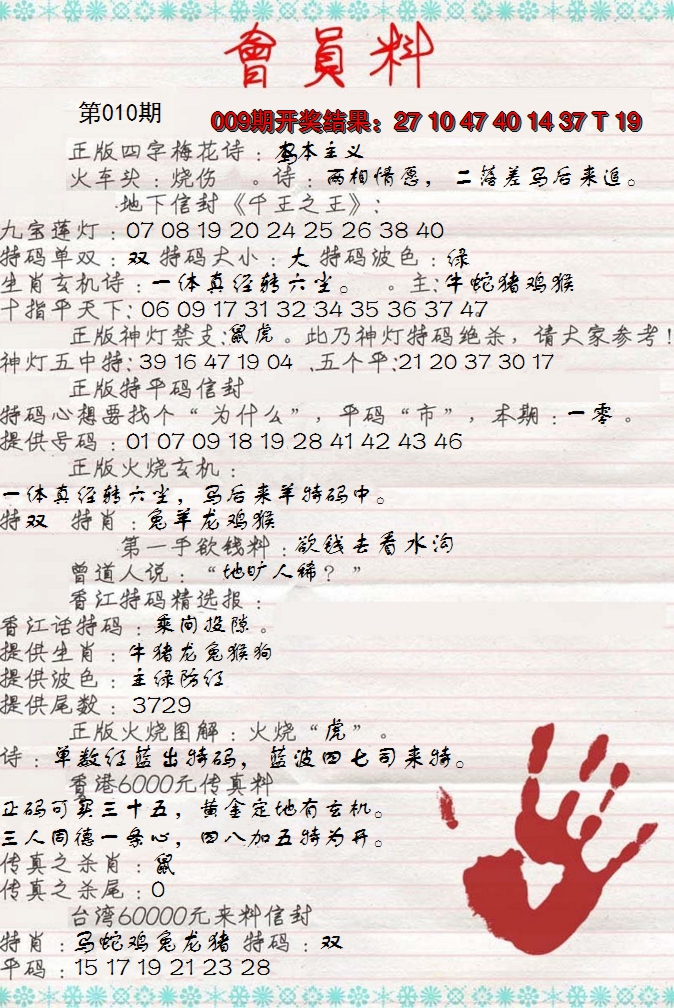 會員料
第010期
009期开奖结果：27 10 47 40 14 37 T 19
正版四字梅花诗：本主义
火车头：烧伤 。诗：两相情愿，二落差马后来追。
地下信封《千王之王》：
九宝莲灯：07 08 19 20 24 25 26 38 40
特码单双：双 特码大小：大 特码波色：绿
生肖玄机诗：一体真经转六尘。 。主:牛蛇猪鸡猴
十指平天下: 06 09 17 31 32 34 35 36 37 47
正版神灯禁支:鼠虎。此乃神灯特码绝杀，请大家参考!
神灯五中特: 39 16 47 19 04 .五个平:21 20 37 30 17
正版特平码信封
特码心想要找个“为什么”，平码“市”，本期：一零。
提供号码：01 07 09 18 19 28 41 42 43 46
正版火烧玄机：
一体真经转六尘，马后来羊特码中。
特双 特肖：兔羊龙鸡猴
第一手欲钱料：欲钱去看水沟
曾道人说：“地旷人稀？”
香江特码精选报：
香江话特码：乘间投隙。
提供生肖：牛猪龙兔猴狗
提供波色：主绿防红
提供尾数：3729
正版火烧图解：火烧“虎”。
诗：单数红蓝出特码，蓝波四七司来特。
香港6000元传真料
正码可买三十五，黄金定地有玄机。
三人同德一条心，四八加五特为开。
传真之杀肖：鼠
传真之杀尾：0
台湾60000元来料信封
特肖：马蛇鸡兔龙猪 特码：双
平码：15 17 19 21 23 28